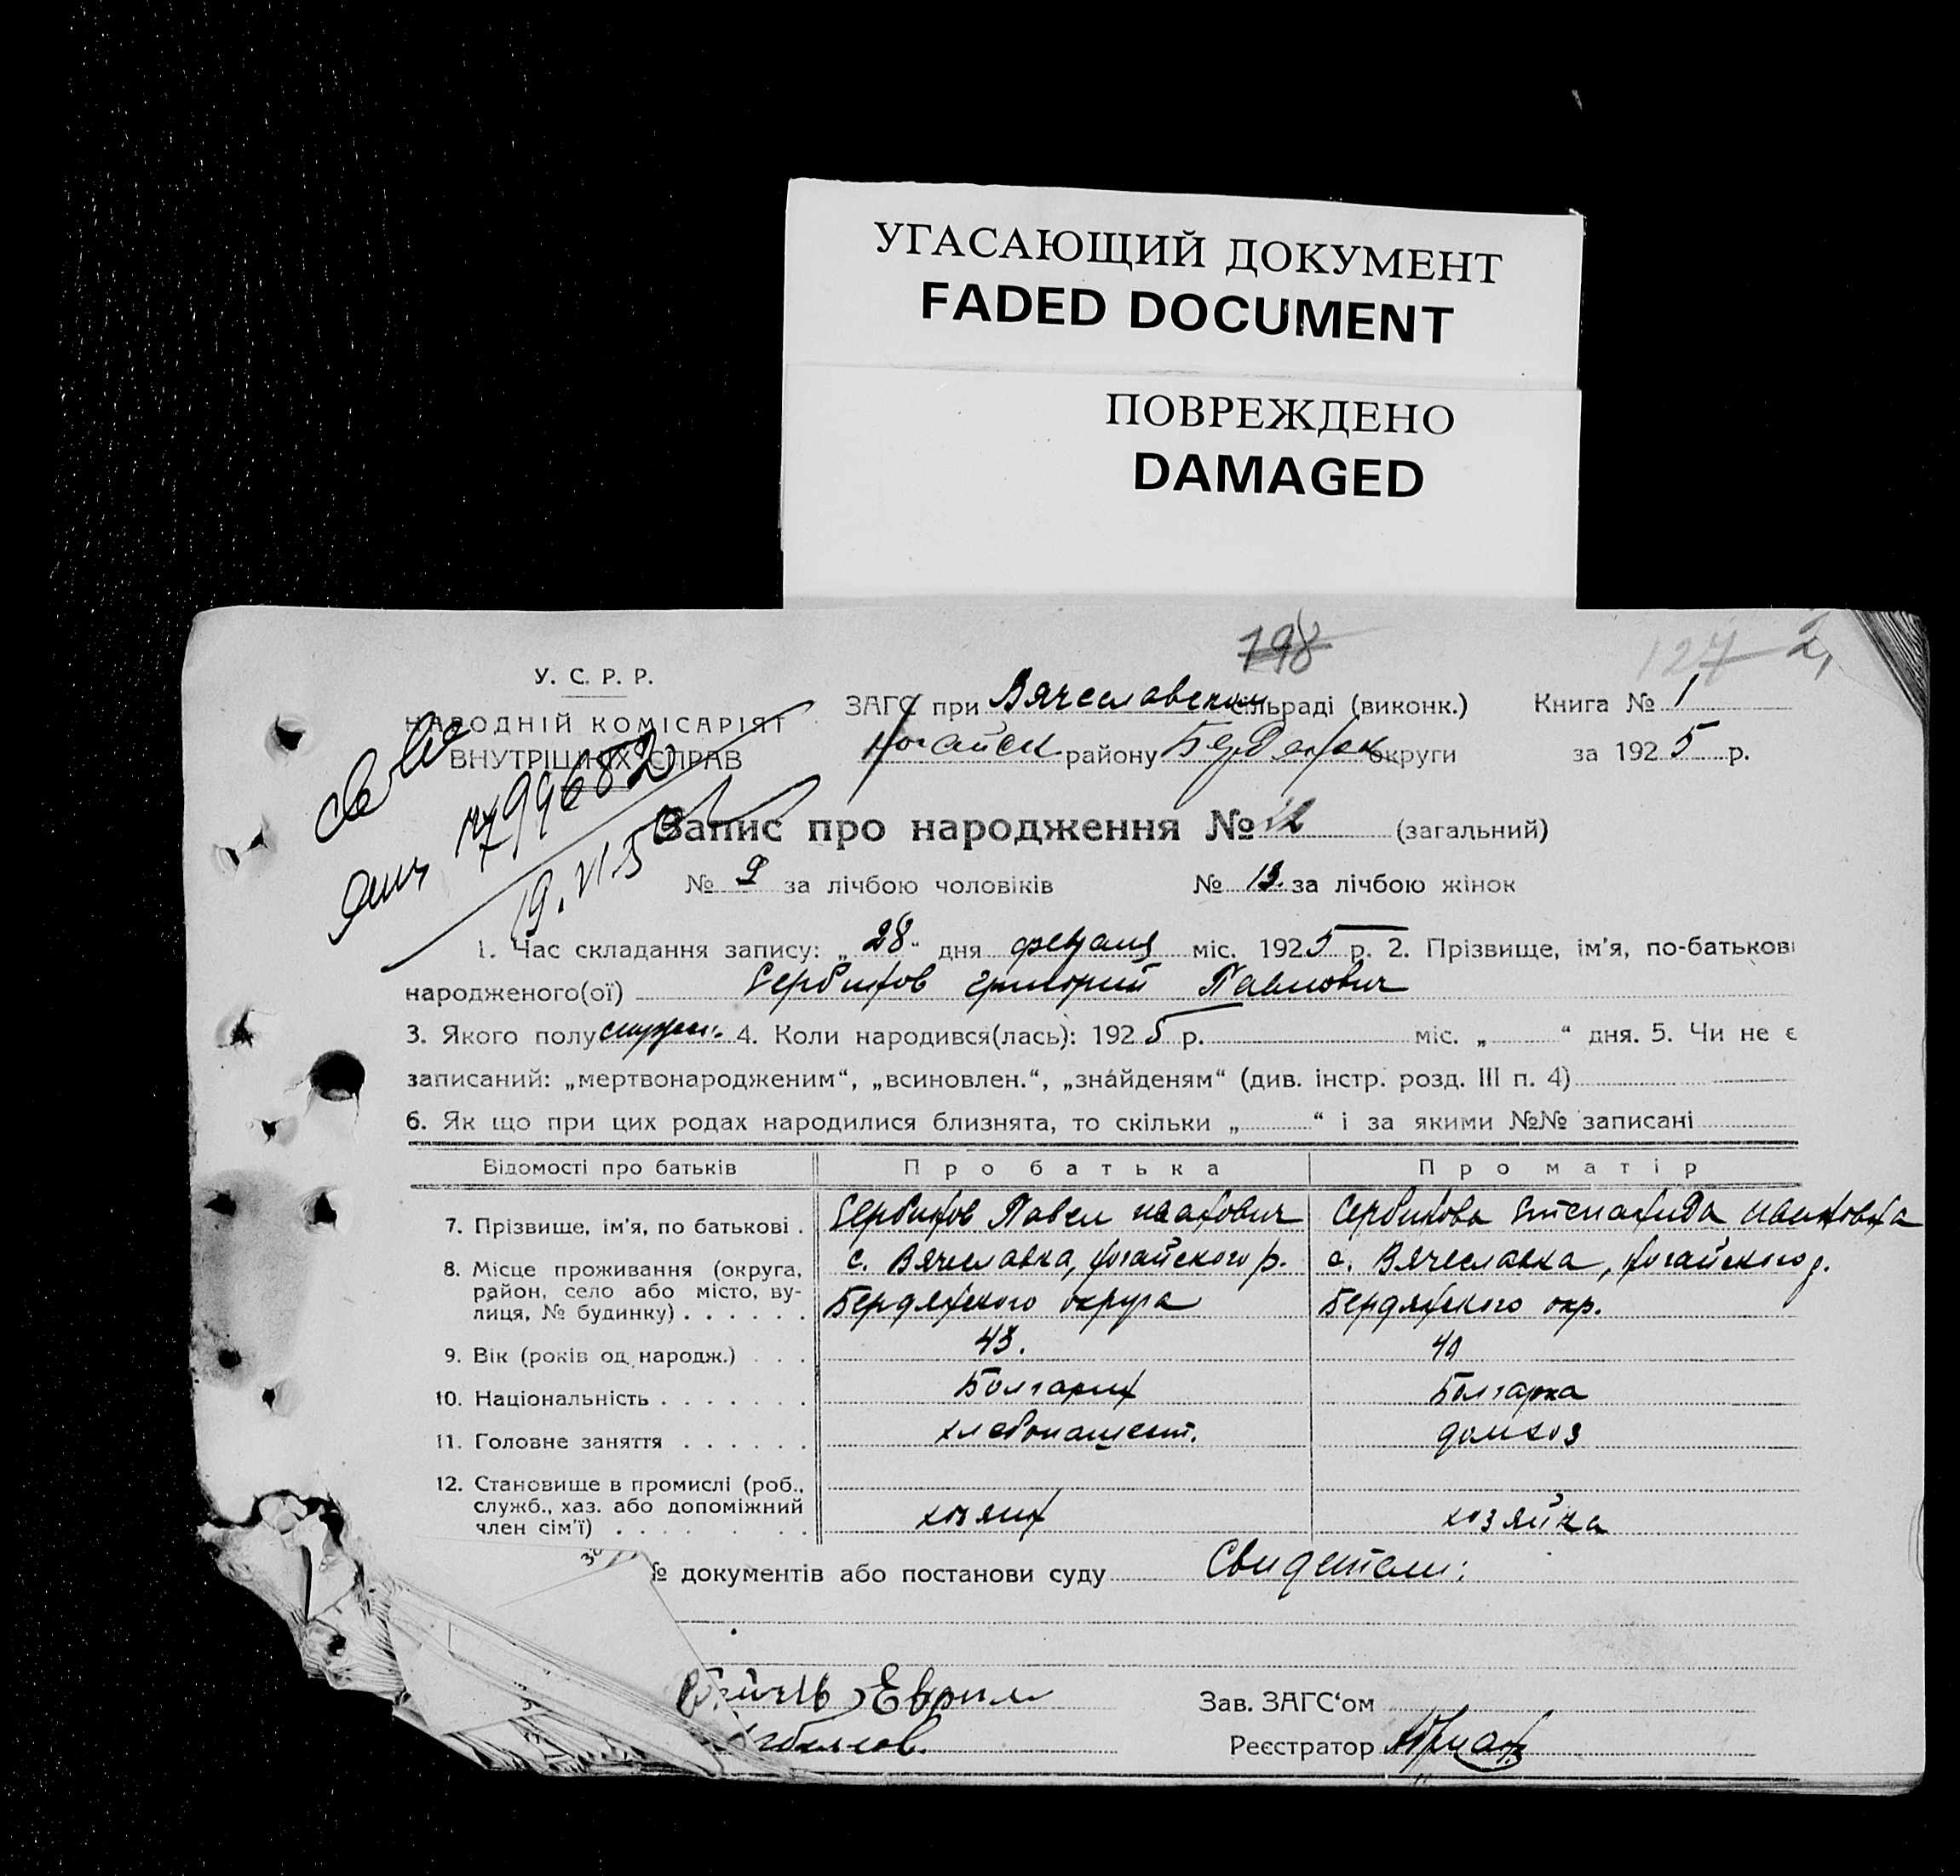 УГАСАЮЩИЙ ДОКУМЕНТ
FADED DOCUMENT
ПОВРЕЖДЕНО
DAMAGED
798
127 2
У. С. Р. Р.
НАРОДНІЙ КОМІСАРІЯТ
ВНУТРІШНІХ СПРАВ
ЗАГС при Вячеславском сільраді (виконк.) Книга № 1
Ногайск району Бердянск округи за 1925 р.
996682
19.VI.5
Запис про народження № 12 (загальний)
№ 9 за лічбою чоловіків № 13. за лічбою жінок
1. Час складання запису: „28“ дня февраля міс. 1925 р. 2. Прізвище, ім'я, по-батькові
народженого(ої) Сербинов Григорий Павлович
3. Якого полу 4. Коли народився(лась): 1925 р. міс. „ “ дня. 5. Чи не є
записаний: „мертвонародженим“, „всиновлен.“, „знайденям“ (див. інстр. розд. III п. 4)
6. Як що при цих родах народилися близнята, то скільки „ “ і за якими №№ записані
Відомості про батьків Про батька Про матір
7. Прізвище, ім'я, по батькові . Сербинов Павел Иванович Сербинова Степанида Ивановна
8. Місце проживання (округа, с. Вячеславка, Ногайского р. с. Вячеславка, Ногайского р.
район, село або місто, ву-
лиця, № будинку) . . . . . . Бердянского округа Бердянского окр.
9. Вік (років од народж.) . . . 43. 40
10. Національність . . . . . . . Болгарин Болгарка
11. Головне заняття . . . . . . хлебопашест. домхоз
12. Становище в промислі (роб.,
служб., хаз. або допоміжний
член сім'ї) . . . . . . хозяин хозяйка
№ документів або постанови суду Свидетели:
Зав. ЗАГС'ом
Реєстратор